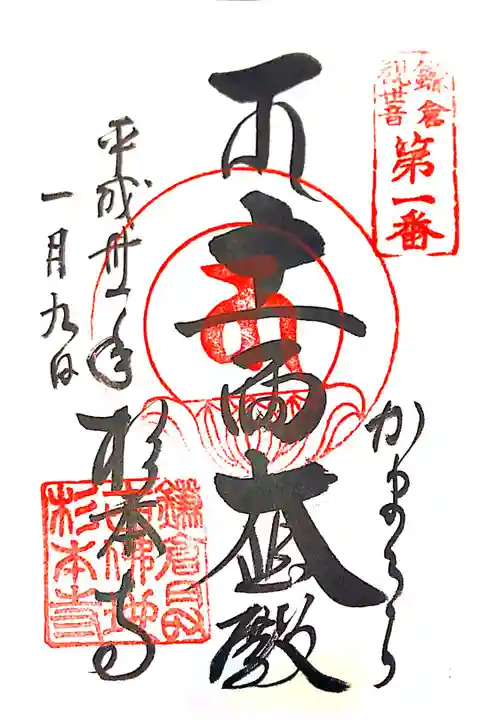 鎌倉
観世音
第一番
かまくら
十一面大悲殿
平成卅一年
一月九日
杉本寺
鎌倉
佛地
杉本寺